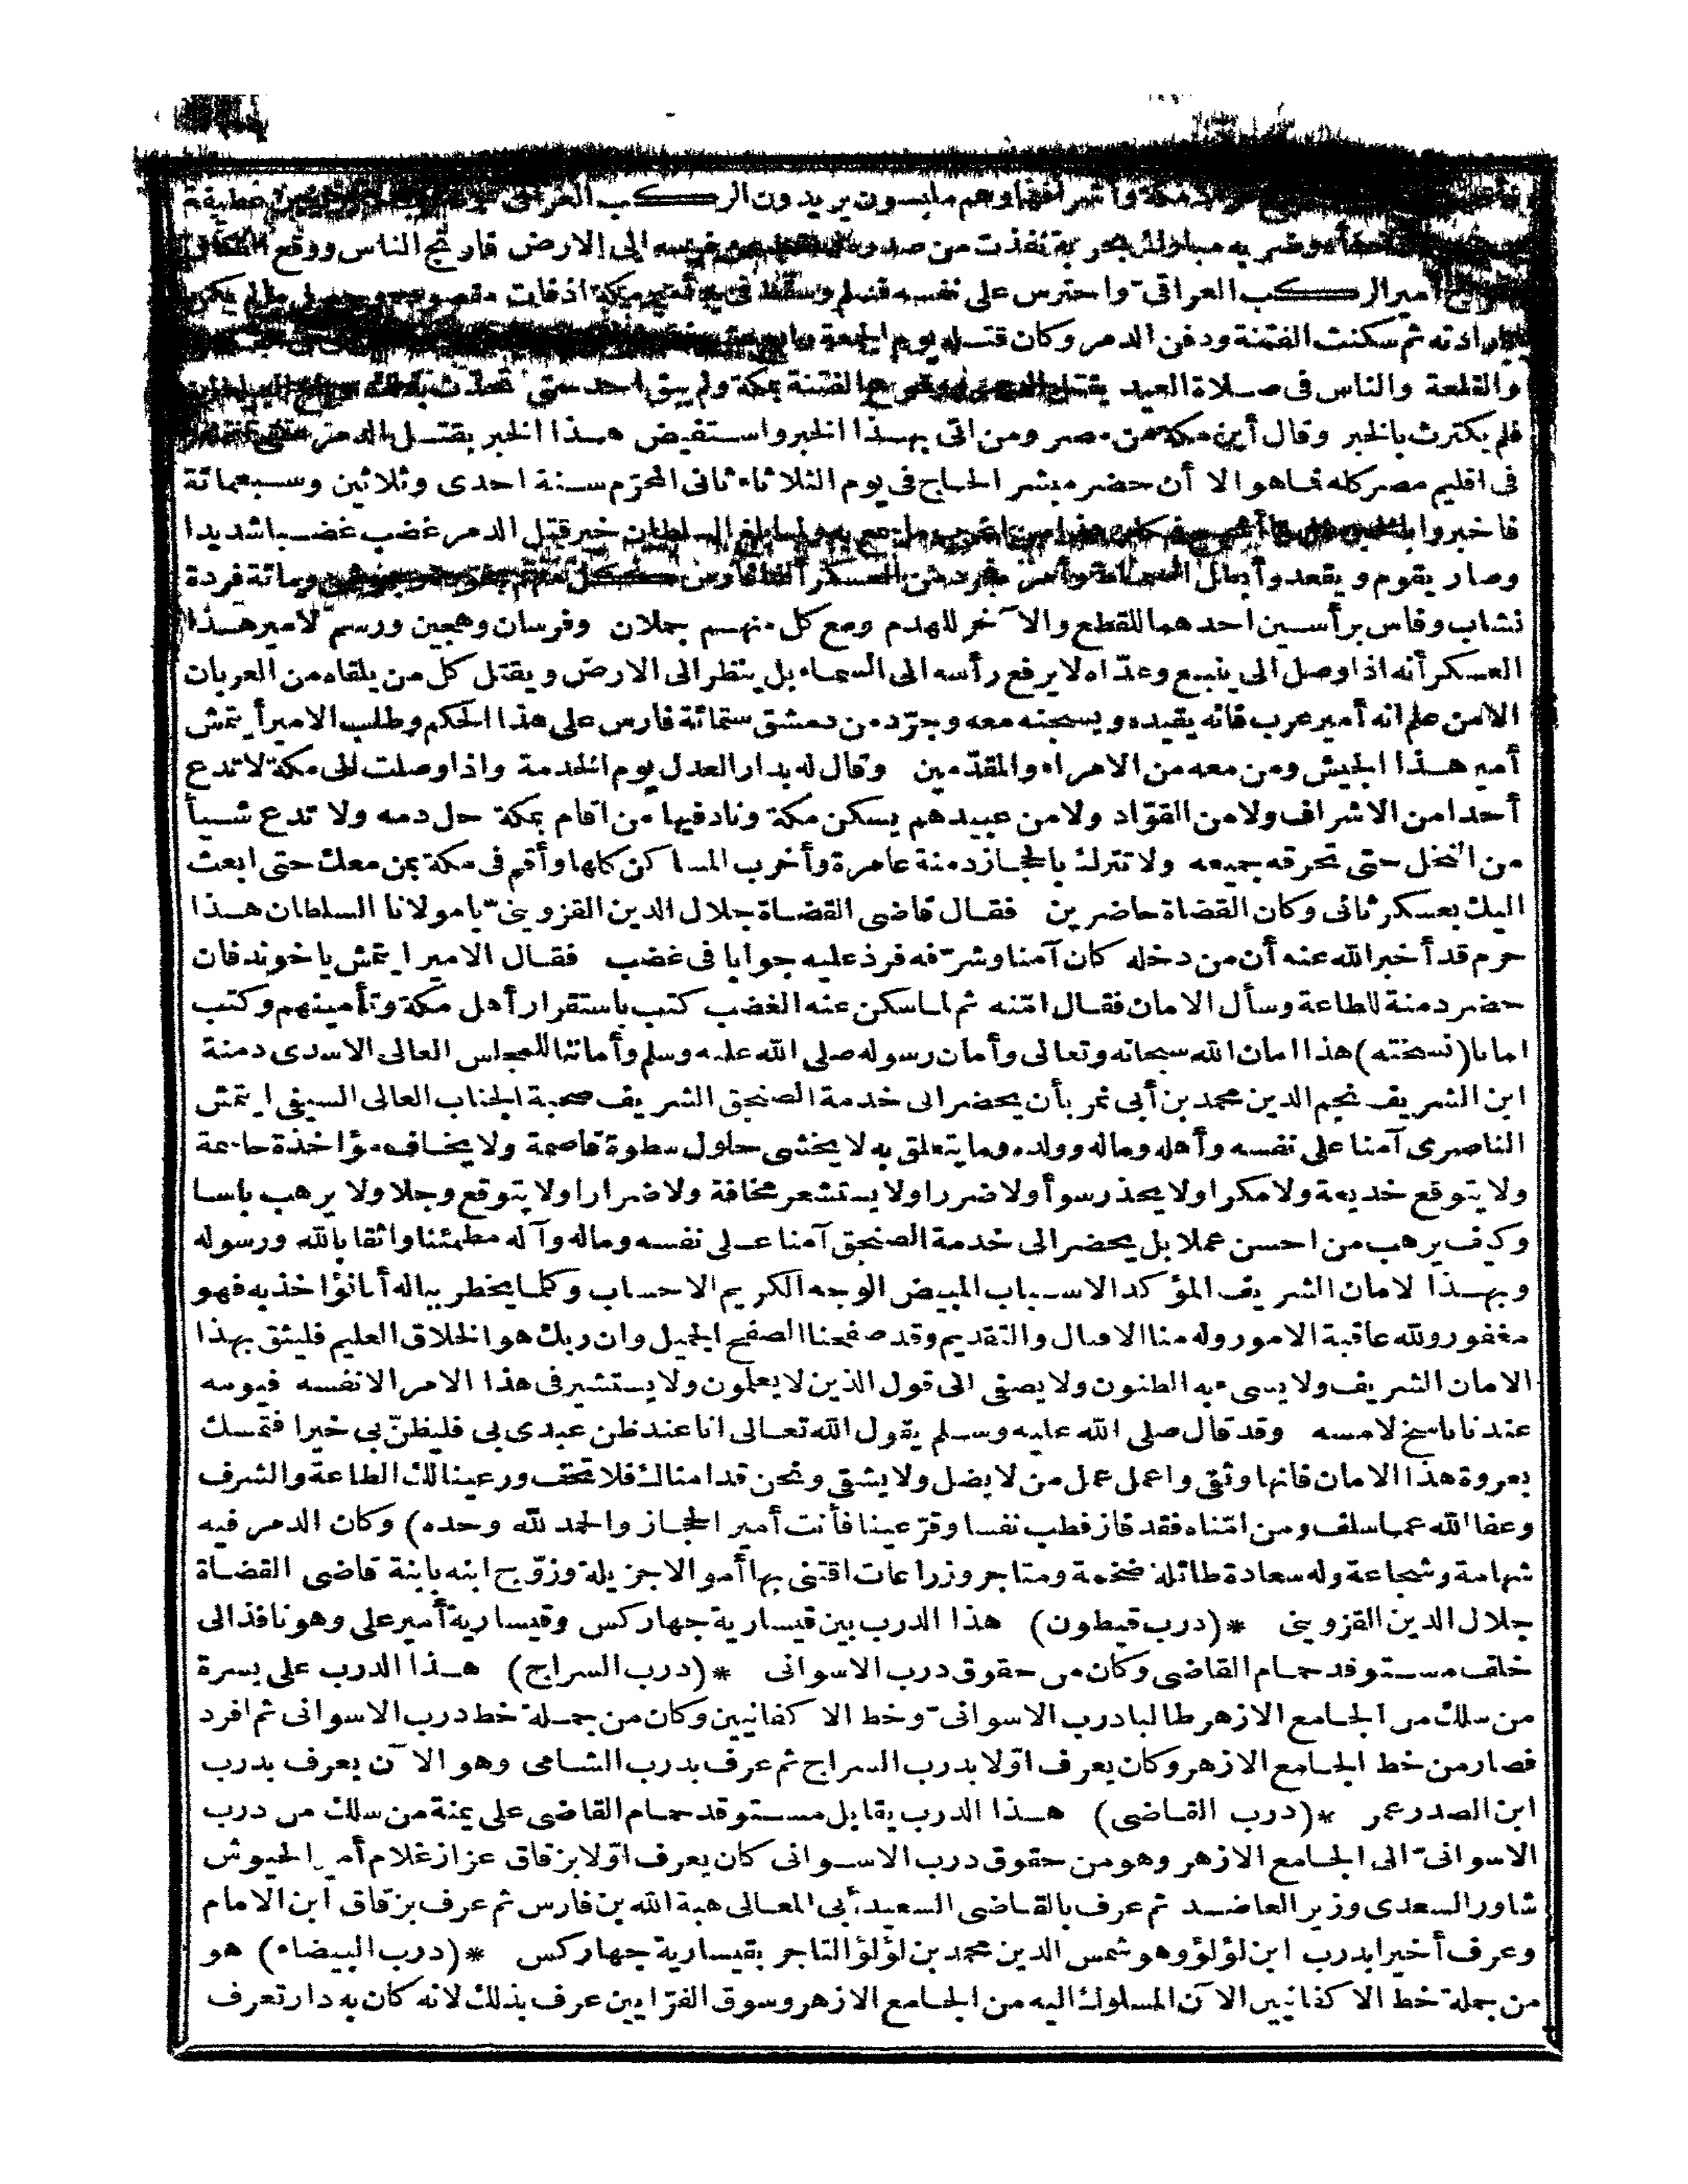 مكة واشرافها وهم ملبسون يريدون الركب العراقى
وضربه مبارك بحربة نفذت من صدره الى الارض فارتج الناس ووقع
امير الركب العراقى واحترس على نفسه فسلم وسقط فى يد أمير مكة اذ فات مقصوده وحصل ما لم يكن
بارادته ثم سكنت الفتنة ودفن الدمر وكان قتله يوم الجمعة
والقلعة والناس فى صلاة العيد بقتل الدمر ووقوع الفتنة بمكة ولم يبق احد حتى تحدث بذلك
فلم يكترث بالخبر وقال أين مكة من مصر ومن اتى بهذا الخبر واستفيض هذا الخبر بقتل الدمر حتى
فى اقليم مصر كله فما هو الا أن حضر مبشر الحاج فى يوم الثلاثاء ثانى المحرّم سنة احدى وثلاثين وسبعمائة
فاخبروا ولما بلغ السلطان خبر قتل الدمر غضب غضبا شديدا
وصار يقوم ويقعد وأبطل السماط وأمر فجرد من العسكر ألفا فارس ومائة فردة
نشاب وفاس برأسين احدهما للقطع والآخر للهدم ومع كل منهم جملان وفرسان وهجين ورسم لامير هذا
العسكر أنه اذا وصل الى ينبع وعدّاه لا يرفع رأسه الى السماء بل ينظر الى الارض ويقتل كل من يلقاه من العربان
الا من علم انه أمير عرب فانه يقيده ويسجنه معه وجرّد من دمشق ستمائة فارس على هذا الحكم وطلب الامير أيتمش
أمير هذا الجيش ومن معه من الامراء والمقدّمين وقال له بدار العدل يوم الخدمة واذا وصلت الى مكة لا تدع
أحدا من الاشراف ولا من القوّاد ولا من عبيدهم يسكن مكة وناد فيها من اقام بمكة حل دمه ولا تدع شيأ
من النخل حتى تحرقه جميعه ولا تترك بالحجاز دمنة عامرة وأخرب المساكن كلها وأقم فى مكة بمن معك حتى ابعث
اليك بعسكر ثانى وكان القضاة حاضرين فقال قاضى القضاة جلال الدين القزوينى يا مولانا السلطان هذا
حرم قد أخبر الله عنه أن من دخله كان آمنا وشرّفه فردّ عليه جوابا فى غضب فقال الامير ايتمش يا خوند فان
حضر دمنة للطاعة وسأل الامان فقال امّنه ثم لما سكن عنه الغضب كتب باستقرار أهل مكة وتأمينهم وكتب
امانا (نسخته) هذا امان الله سبحانه وتعالى وأمان رسوله صلى الله عليه وسلم وأماننا للمجلس العالى الاسدى دمنة
ابن الشريف نجم الدين محمد بن أبى نمر بأن يحضر الى خدمة الصنجق الشريف صحبة الجناب العالى السيفى ايتمش
الناصرى آمنا على نفسه وأهله وماله وولده وما يتعلق به لا يخشى حلول سطوة قاصمة ولا يخاف مؤاخذة حاسمة
ولا يتوقع خديعة ولا مكرا ولا يحذر سوأ ولا ضررا ولا يستشعر مخافة ولا ضرارا ولا يتوقع وجلا ولا يرهب باسا
وكيف يرهب من احسن عملا بل يحضر الى خدمة الصنجق آمنا على نفسه وماله وآله مطمئنا واثقا بالله ورسوله
وبهذا لامان الشريف المؤكد الاسباب المبيض الوجه الكريم الاحساب وكلما يخطر بباله أنا نؤاخذ به فهو
مغفور ولله عاقبة الامور وله منا الاقبال والتقديم وقد صفحنا الصفح الجميل وان ربك هو الخلاق العليم فليثق بهذا
الامان الشريف ولا يسىء به الظنون ولا يصغى الى قول الذين لا يعلمون ولا يستشير فى هذا الامر الا نفسه فيومه
عندنا ناسخ لامسه وقد قال صلى الله عليه وسلم يقول الله تعالى انا عند ظن عبدى بى فليظنّ بى خيرا فتمسك
بعروة هذا الامان فانها وثقى واعمل عمل من لا يضل ولا يشقى ونحن قد امناك فلا تخف ورعينا لك الطاعة والشرف
وعفا الله عما سلف ومن امّناه فقد فاز فطب نفسا وقرّ عينا فأنت أمير الحجاز والحمد لله وحده) وكان الدمر فيه
شهامة وشجاعة وله سعادة طائلة ضخمة ومتاجر وزراعات اقتنى بها أموالا جزيلة وزوّج ابنه بابنة قاضى القضاة
جلال الدين القزوينى *(درب قيطون) هذا الدرب بين قيسارية جهاركس وقيسارية أمير على وهو نافذ الى
خلف مستوقد حمام القاضى وكان من حقوق درب الاسوانى *(درب السراج) هذا الدرب على يسرة
من سلك من الجامع الازهر طالبا درب الاسوانى وخط الاكفانيين وكان من جملة خط درب الاسوانى ثم افرد
فصار من خط الجامع الازهر وكان يعرف اوّلا بدرب السراج ثم عرف بدرب الشامى وهو الآن يعرف بدرب
ابن الصدر عمر *(درب القاضى) هذا الدرب يقابل مستوقد حمام القاضى على يمنة من سلك من درب
الاسوانى الى الجامع الازهر وهو من حقوق درب الاسوانى كان يعرف اوّلا بزقاق عزاز غلام أمير الجيوش
شاور السعدى وزير العاضد ثم عرف بالقاضى السعيد أبى المعالى هبة الله بن فارس ثم عرف بزقاق ابن الامام
وعرف أخيرا بدرب ابن لؤلؤ وهو شمس الدين محمد بن لؤلؤ التاجر بقيسارية جهاركس *(درب البيضاء) هو
من جملة خط الاكفانيين الآن المسلوك اليه من الجامع الازهر وسوق الفرّايين عرف بذلك لانه كان به دار تعرف